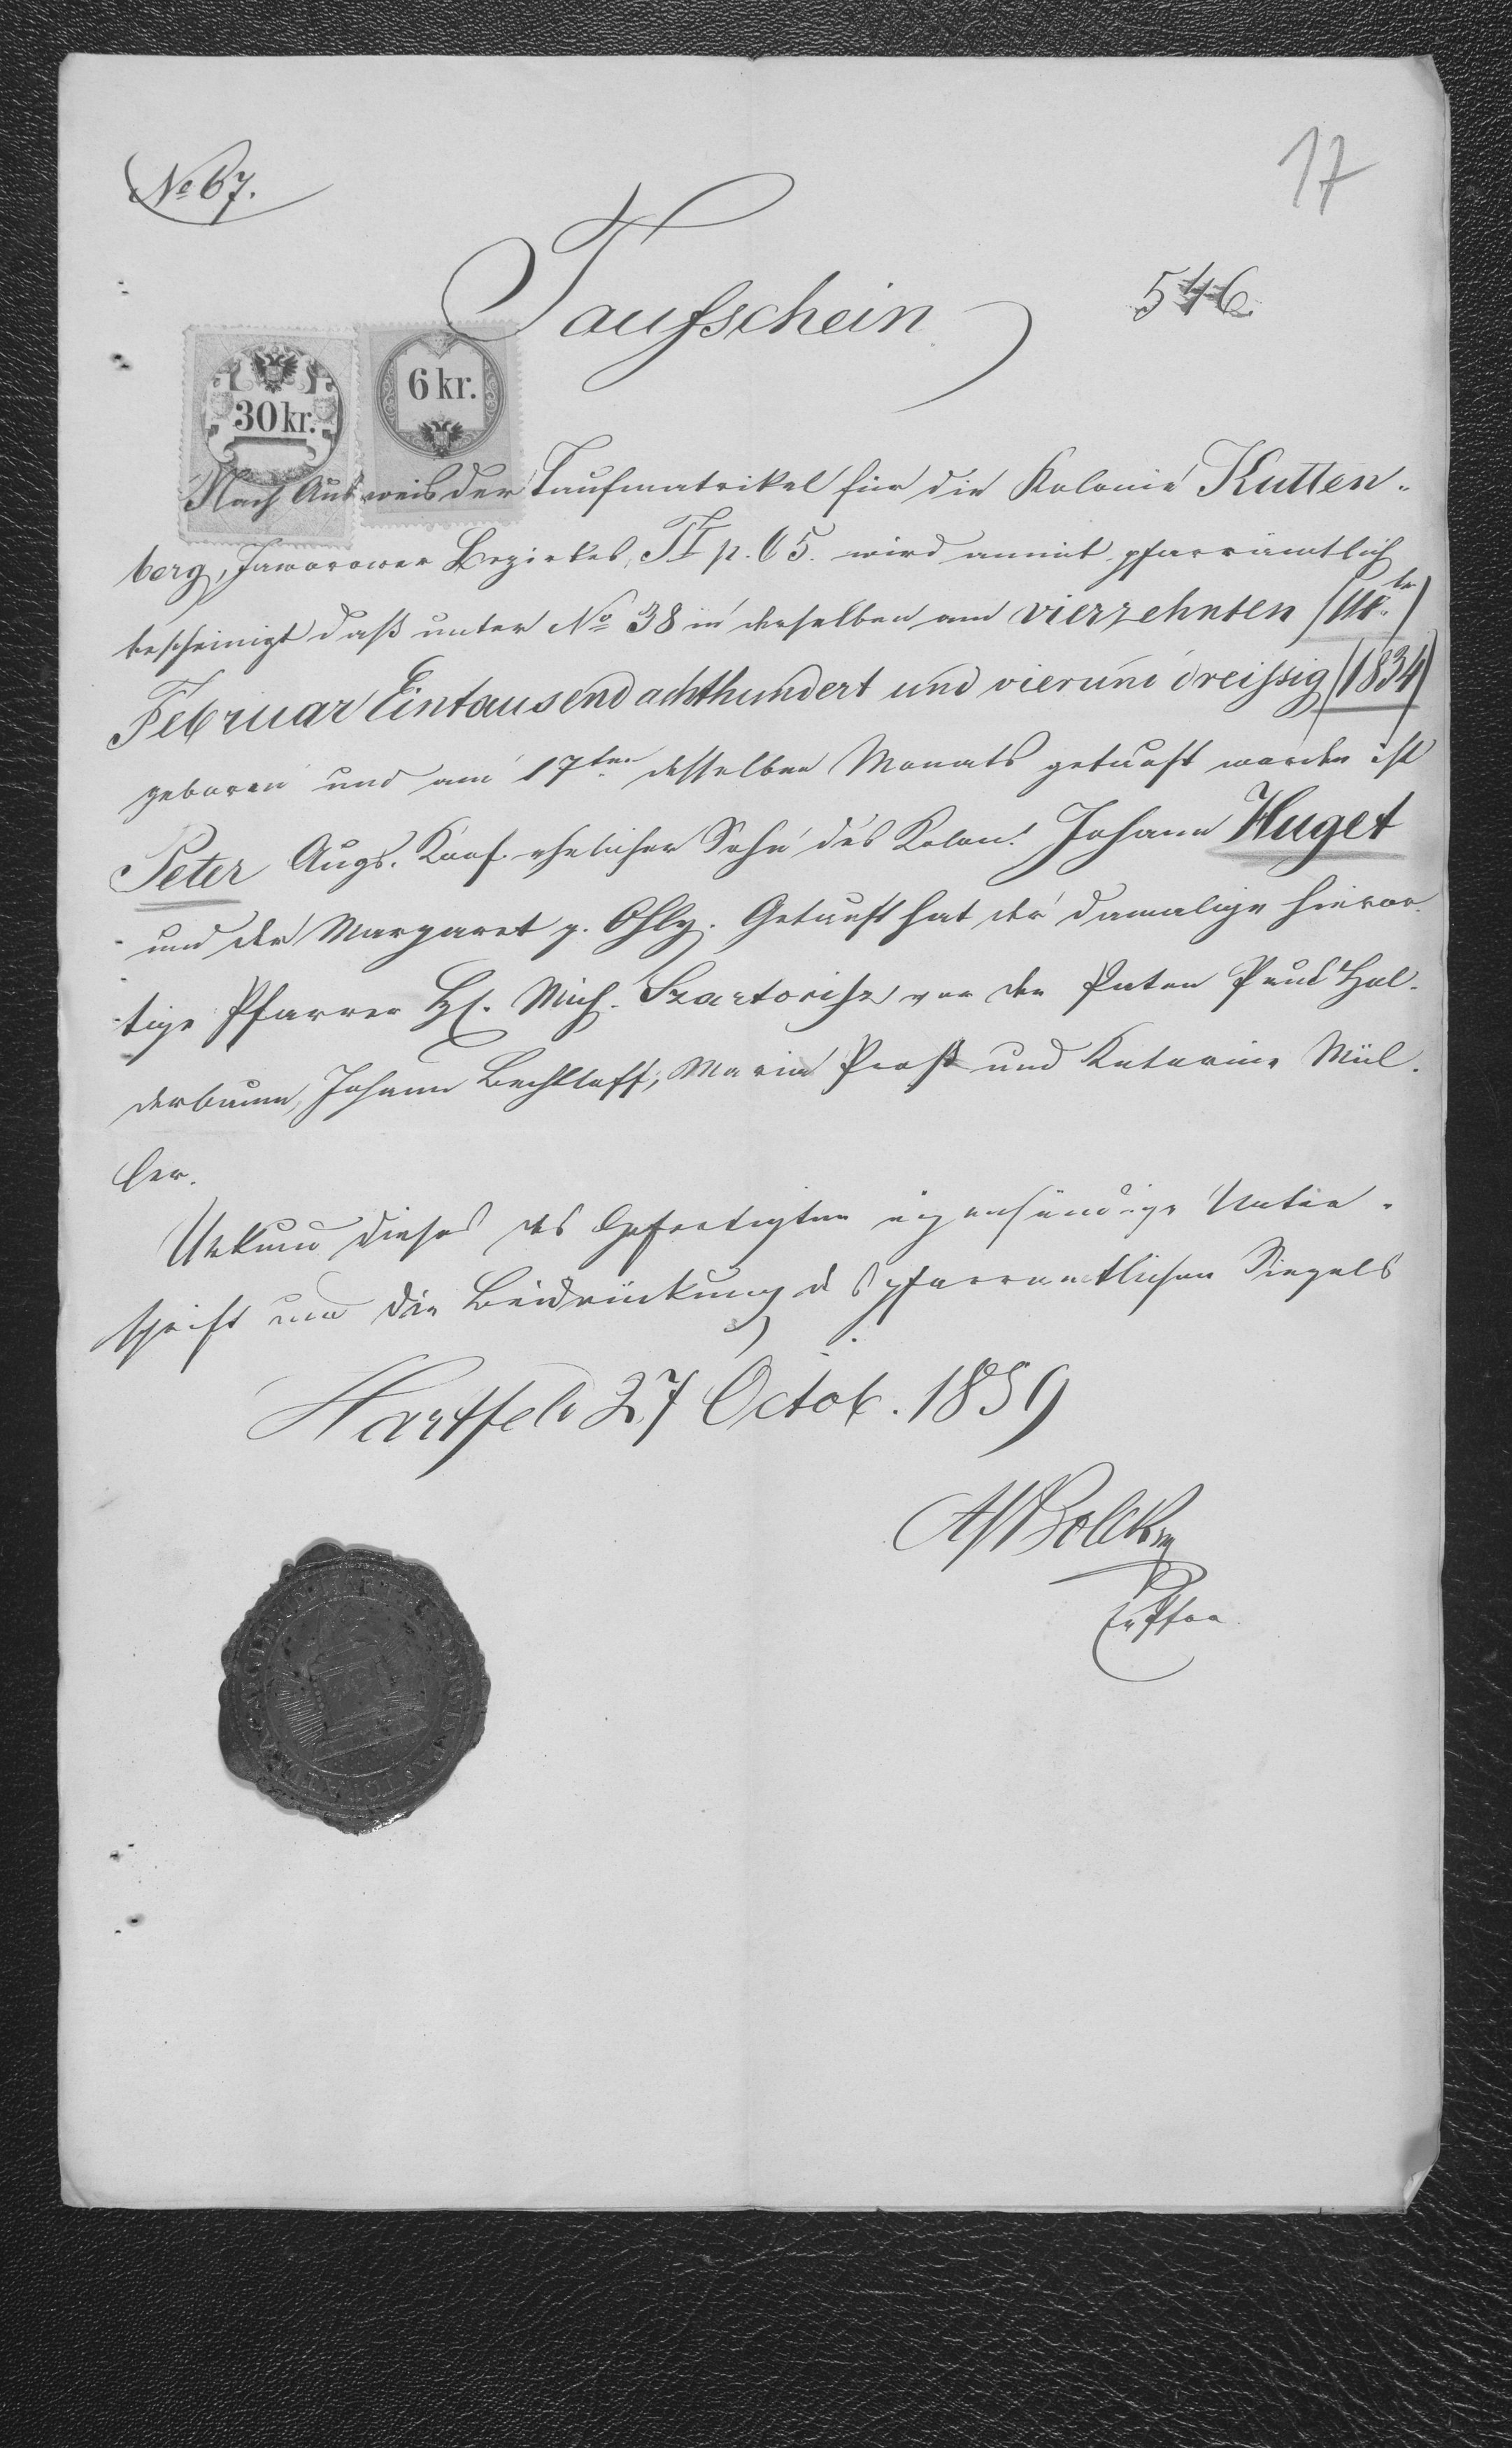 No 67.
17
Taufschein
546
30 kr.
6 kr.
Nach Ausweis der Taufmatrikel für die Kolonie Kutten-
berg, Jaworower Bezirkes, T I p. 65. wird anmit pfarrämtlich
bescheinigt daß unter No 38 in derselben am vierzehnten /14te/
Februar Eintausend achthundert und vierund dreissig /1834/
geboren und am 17ten desselben Monats getauft worden ist
Peter Augs. Konf. ehelicher Sohn des Kolon. Johann Huget
und der Margaret g. Ohly. Getauft hat der damalige hieror-
tige Pfarrer H. Mich. Szartorisz vor den Paten Paul Hal-
derbaum, Johann Bechtloff, Maria Prost und Katarine Mül-
ler.
Urkund dieses des Gefertigten eigenhändige Unter-
schrift und die Beidrückung des pfarramtlichen Siegels
Hartfeld 27 Octob. 1859